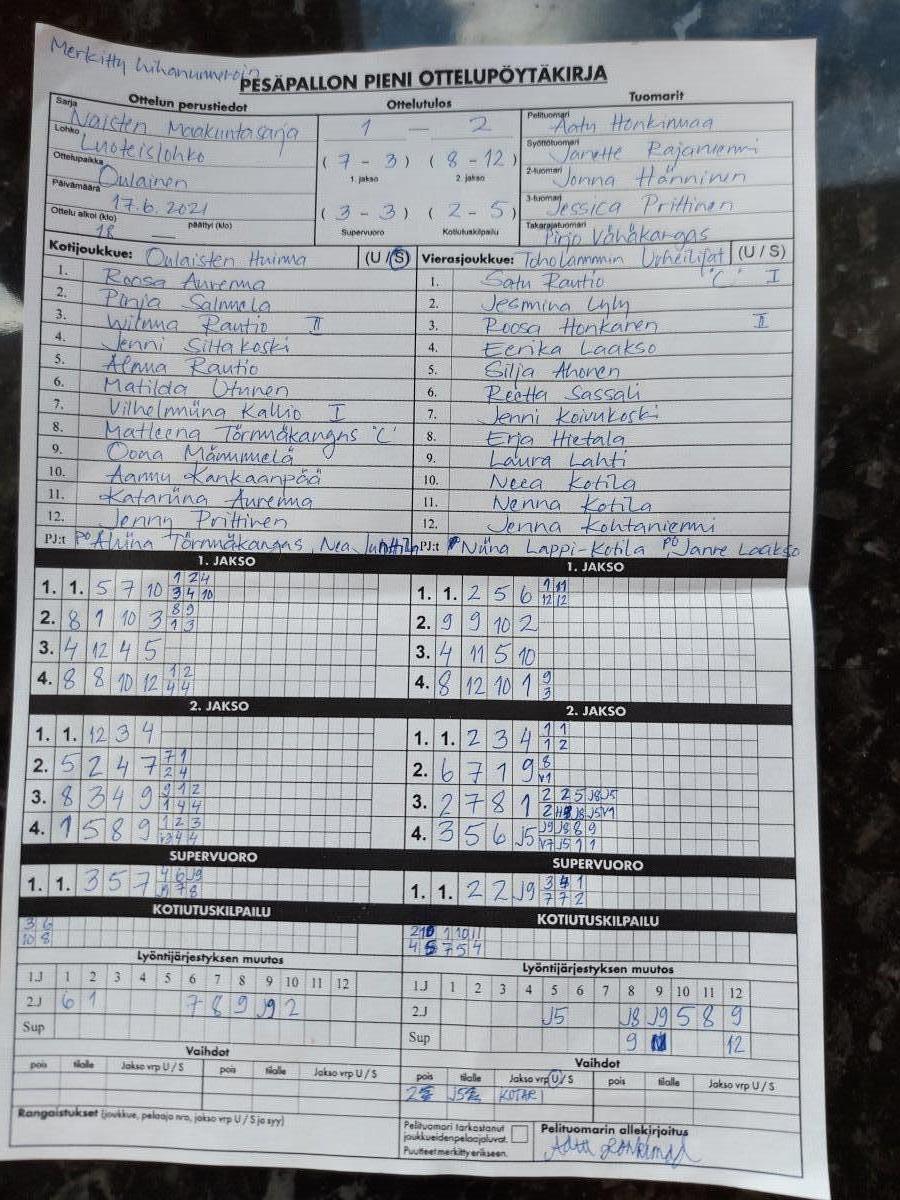 Merkitty hihanumeroin
PESÄPALLON PIENI OTTELUPÖYTÄKIRJA
Ottelun perustiedot Ottelutulos Tuomarit
Sarja Naisten Maakuntasarja
Lohko Luoteislohko
Ottelupaikka Oulainen
Päivämäärä 17.6. 2021
Ottelu alkoi (klo) 18 päättyi (klo) —
1 — 2
( 7 - 3 ) ( 8 - 12 )
1. jakso 2. jakso
( 3 - 3 ) ( 2 - 5 )
Supervuoro Kotiutuskilpailu
Pelituomari Aatu Honkinmaa
Syöttötuomari Janette Rajaniemi
2-tuomari Jonna Hänninen
3-tuomari Jessica Prittinen
Takarajatuomari Pirjo Vähäkangas
Kotijoukkue: Oulaisten Huima (U / S)
1. Roosa Auremma
2. Pinja Salmela
3. Wilma Rautio II
4. Jenni Siltakoski
5. Alma Rautio
6. Matilda Utunen
7. Vilhelmiina Kallio I
8. Matleena Törmäkangas "C"
9. Oona Mämmelä
10. Aamu Kankaanpää
11. Katariina Auremma
12. Jenny Prittinen
PJ:t PO Alviina Törmäkangas, Nea
Vierasjoukkue: Toholammin Urheilijat (U / S)
1. Satu Rautio "C" I
2. Jesmina Lyly
3. Roosa Honkanen II
4. Eerika Laakso
5. Silja Ahonen
6. Reetta Sassali
7. Jenni Koivukoski
8. Erja Hietala
9. Laura Lahti
10. Neea Kotila
11. Nenna Kotila
12. Jenna Kohtaniemi
PJ:t Niina Lappi-Kotila PO Janne Laakso
1. JAKSO
1. 1. 5 7 10 1 2 4
3 4 10
2. 8 1 10 3 8 9
1 3
3. 4 12 4 5
4. 8 8 10 12 1 2
4 4
1. JAKSO
1. 1. 2 5 6 1 11
12 12
2. 9 9 10 2
3. 4 11 5 10
4. 8 12 10 1 9
3
2. JAKSO
1. 1. 12 3 4
2. 5 2 4 7 7 1
2 4
3. 8 3 4 9 9 1 2
1 4 4
4. 1 5 8 9 1 2 3
4 4
2. JAKSO
1. 1. 2 3 4 1 1
1 2
2. 6 7 1 9 8
V1
3. 2 7 8 1 2 2 5 J8 J5
2 J8 J5 V1
4. 3 5 6 J5 J9 J8 8 9
V7 J5 1 1
SUPERVUORO
1. 1. 3 5 7 4 6 J9
7 8
SUPERVUORO
1. 1. 2 2 J9 3 4 1
7 7 2
KOTIUTUSKILPAILU
3 6
10 8
KOTIUTUSKILPAILU
2 10 1 10 11
4 5 7 5 4
Lyöntijärjestyksen muutos
1.J 1 2 3 4 5 6 7 8 9 10 11 12
2.J 6 1 7 8 9 J9 2
Sup
Lyöntijärjestyksen muutos
1.J 1 2 3 4 5 6 7 8 9 10 11 12
2.J J5 J8 J9 5 8 9
Sup 9 12
Vaihdot
pois tilalle Jakso vrp U / S pois tilalle Jakso vrp U / S
Vaihdot
pois tilalle Jakso vrp U / S pois tilalle Jakso vrp U / S
KOTARI
Rangaistukset (joukkue, pelaaja nro, jakso vrp U / S ja syy)
Pelituomari tarkastanut
joukkueidenpelaajaluvat.
Puutteet merkitty erikseen.
Pelituomarin allekirjoitus